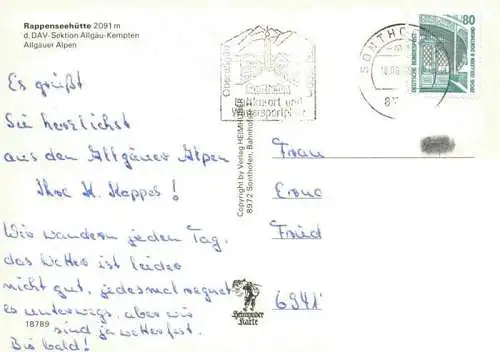 Rappenseehütte 2091 m
d. DAV-Sektion Allgäu-Kempten
Allgäuer Alpen
Es grüßt
Sie herzlichst
aus den Allgäuer Alpen
Ihre H. Kappes!
Wir wandern jeden Tag,
das Wetter ist leider
nicht gut, jedesmal regnet
es unterwegs, aber wir
sind ja wetterfest.
Bis bald!
18789
Copyright by Verlag HEIMHUBER
8972 Sonthofen, Bahnhof
Heimhuber
Karte
Sonthofen
Luftkurort und
Wintersportplatz
SONTHO
80
DEUTSCHE BUNDESPOST
ZECHE ZOLLERN II DORTMUND
Frau
Erna
Fried
6941